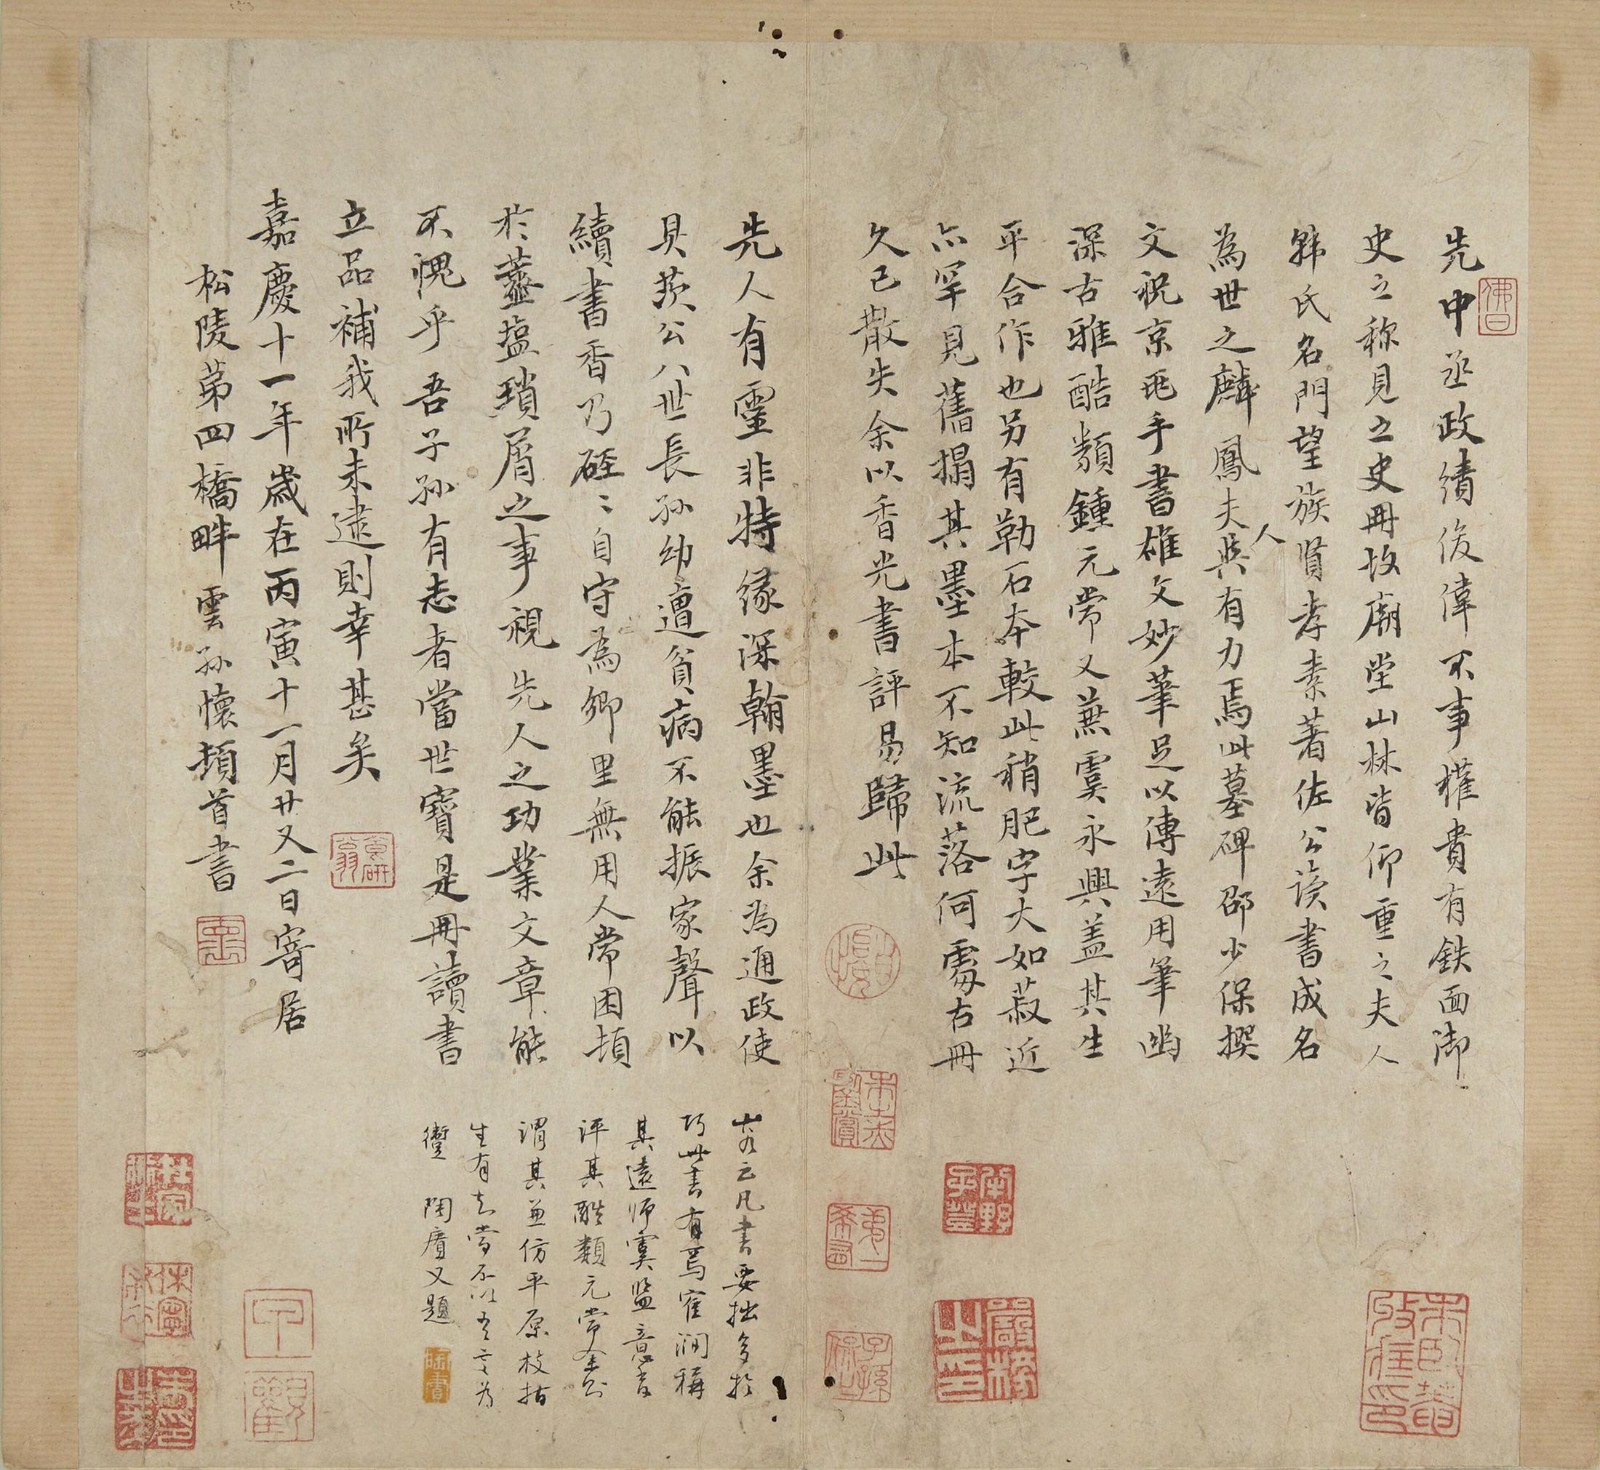 先中丞政績俊偉不事權貴有鉄面御
史之称見之史冊故廟堂山林皆仰重之夫人
韩氏名門望族賢孝素著佐公读書成名
為世之麟鳳夫人與有力焉此墓碑邵少保撰
文祝京兆手書雄文妙筆足以傳遠用筆幽
深古雅酷類鍾元常又兼虞永興盖其生
平合作也另有勒石本較此稍肥字大如菽近
亦罕見舊搨其墨本不知流落何處右冊
久已散失余以香光書評易歸此
先人有靈非特缘深翰墨也余為通政使
貝羙公八世長孙幼遭貧病不能振家聲以
續書香乃硁〻自守為鄉里無用人常困頓
於虀塩瑣屑之事視先人之功業文章能
不愧乎吾子孙有志者當世寶是冊讀書
立品補我所未逮則幸甚矣
嘉慶十一年歲在丙寅十一月廿又二日寄居
松陵第四橋畔雲孙懷頓首書
云凡書要拙多於
巧此書有焉隺澗稱
其遠师虞监意有
評其酷類元常余則
謂其兼仿平原枝指
生有知當不以吾言为
陶賡又題